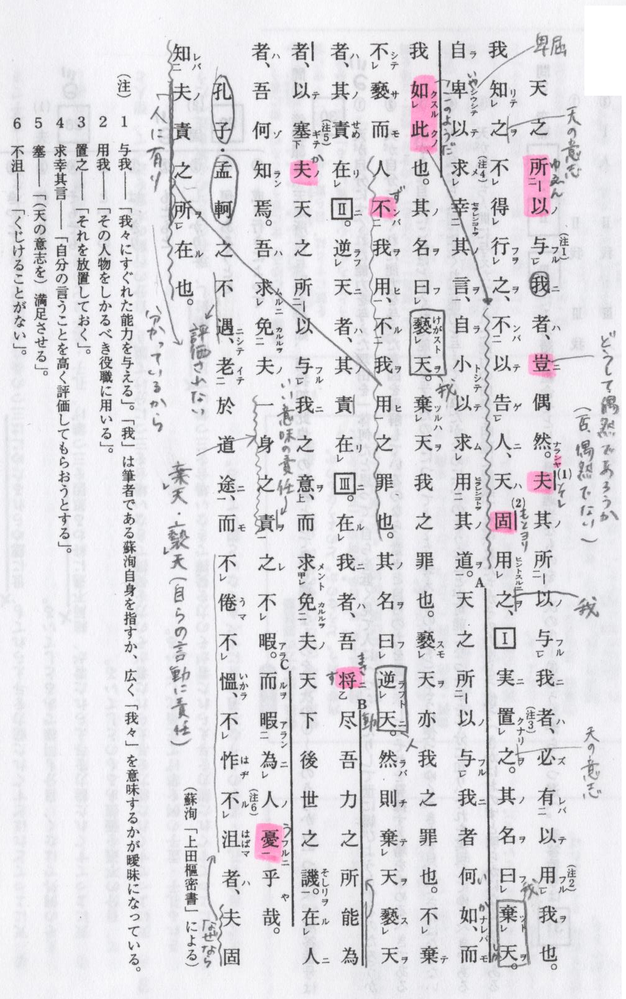 天之所以与我者、豈偶然。夫其所以与我者、必有以用我也。
我知之不得行之、不以告人、天固用之、Ⅰ実置之。其名曰棄天。
自卑以求幸其言、自小以求用其道。天之所以与我者何如、而
我如此也。其名曰褻天。棄天我之罪也。褻天亦我之罪也。不棄
不褻而人不我用、不我用之罪也。其名曰逆天。然則棄天褻天
者、其責在Ⅱ。逆天者、其責在Ⅲ。在我者、吾将尽吾力之所能為
者、以塞夫天之所以与我之意、而求免夫天下後世之譏。在人
者、吾何知焉。吾求免夫一身之責之不暇。而暇為人憂乎哉。
孔子・孟軻之不遇、老於道途、而不倦不慍、不怍不沮者、夫固
知夫責之所在也。
(蘇洵「上田枢密書」による)
(注) 1 与我――「我々にすぐれた能力を与える」。「我」は筆者である蘇洵自身を指すか、広く「我々」を意味するかが曖昧になっている。
2 用我――「その人物をしかるべき役職に用いる」。
3 置之――「それを放置しておく」。
4 求幸其言――「自分の言うことを高く評価してもらおうとする」。
5 塞――「(天の意志を)満足させる」。
6 不沮――「くじけることがない」。
どうして偶然であろうか
(否偶然でない)
卑屈
天の意志
我
天の意志
このようだ
いい意味の責任
評価されない
人に有り
分かっているから
棄天・褻天(自らの言動に責任)
なぜなら